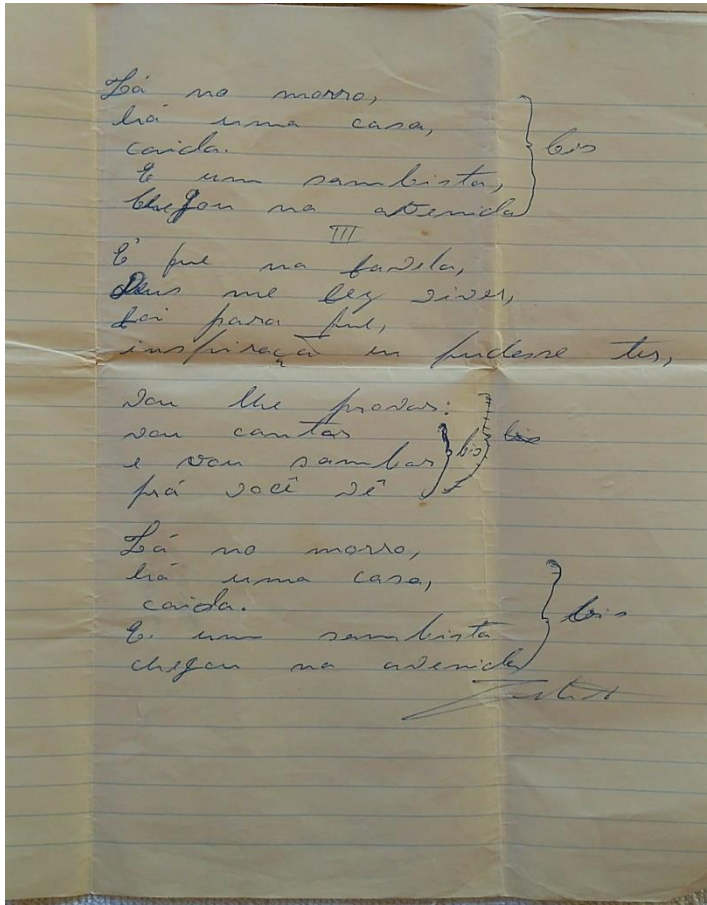 Lá no morro,
há uma casa,
caída.
E um sambista, bis
chegou na avenida
III
É que na favela,
Deus me fez viver,
foi para que,
inspiração eu pudesse ter,
vou lhe provar:
vou cantar
e vou sambar bis bis
prá você vê
Lá no morro,
há uma casa,
caida.
E um sambista bis
chegou na avenida